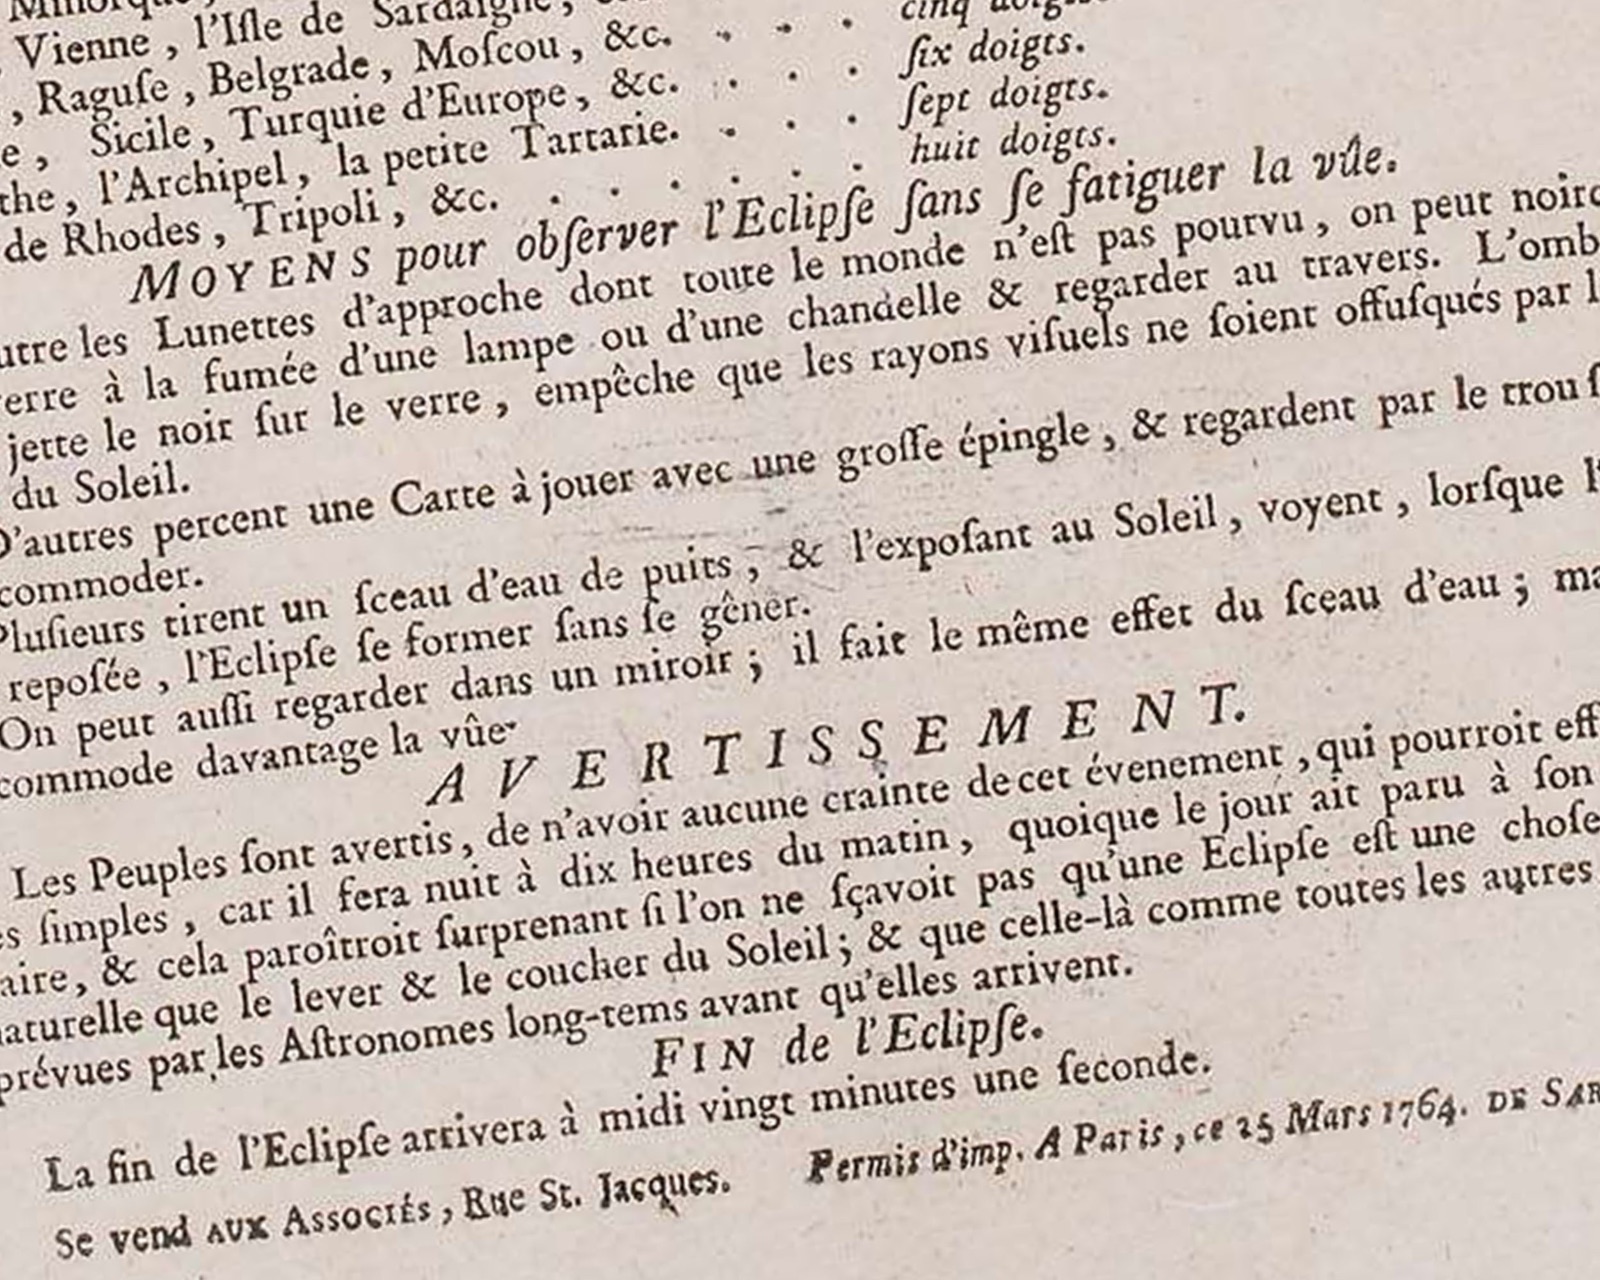 Vienne , l'Iſle de Sardaigne ,
, Raguſe , Belgrade , Moſcou , &c. . . . cinq doigts.
e , Sicile , Turquie d'Europe , &c. . . . ſix doigts.
the , l'Archipel , la petite Tartarie. . . . ſept doigts.
de Rhodes , Tripoli , &c. . . . . . . huit doigts.
MOYENS pour obſerver l'Eclipſe ſans ſe fatiguer la vûe.
utre les Lunettes d'approche dont toute le monde n'eſt pas pourvu , on peut noirc
erre à la fumée d'une lampe ou d'une chandelle & regarder au travers. L'omb
jette le noir ſur le verre , empêche que les rayons viſuels ne ſoient offuſqués par l
du Soleil.
D'autres percent une Carte à jouer avec une groſſe épingle , & regardent par le trou ſ
commoder.
Pluſieurs tirent un ſceau d'eau de puits , & l'expoſant au Soleil , voyent , lorſque l'
repoſée , l'Eclipſe ſe former ſans ſe gêner.
On peut auſſi regarder dans un miroir ; il fait le même effet du ſceau d'eau ; ma
commode davantage la vûe.
AVERTISSEMENT.
Les Peuples ſont avertis , de n'avoir aucune crainte de cet évenement , qui pourroit eff
es ſimples , car il fera nuit à dix heures du matin , quoique le jour ait paru à ſon
aire , & cela paroîtroit ſurprenant ſi l'on ne ſçavoit pas qu'une Eclipſe eſt une choſe
naturelle que le lever & le coucher du Soleil ; & que celle-là comme toutes les autres
prévues par les Aſtronomes long-tems avant qu'elles arrivent.
FIN de l'Eclipſe.
La fin de l'Eclipſe arrivera à midi vingt minutes une ſeconde.
Se vend AUX ASSOCIÉS , Rue St. Jacques. Permis d'imp. A Paris , ce 25 Mars 1764. DE SAR